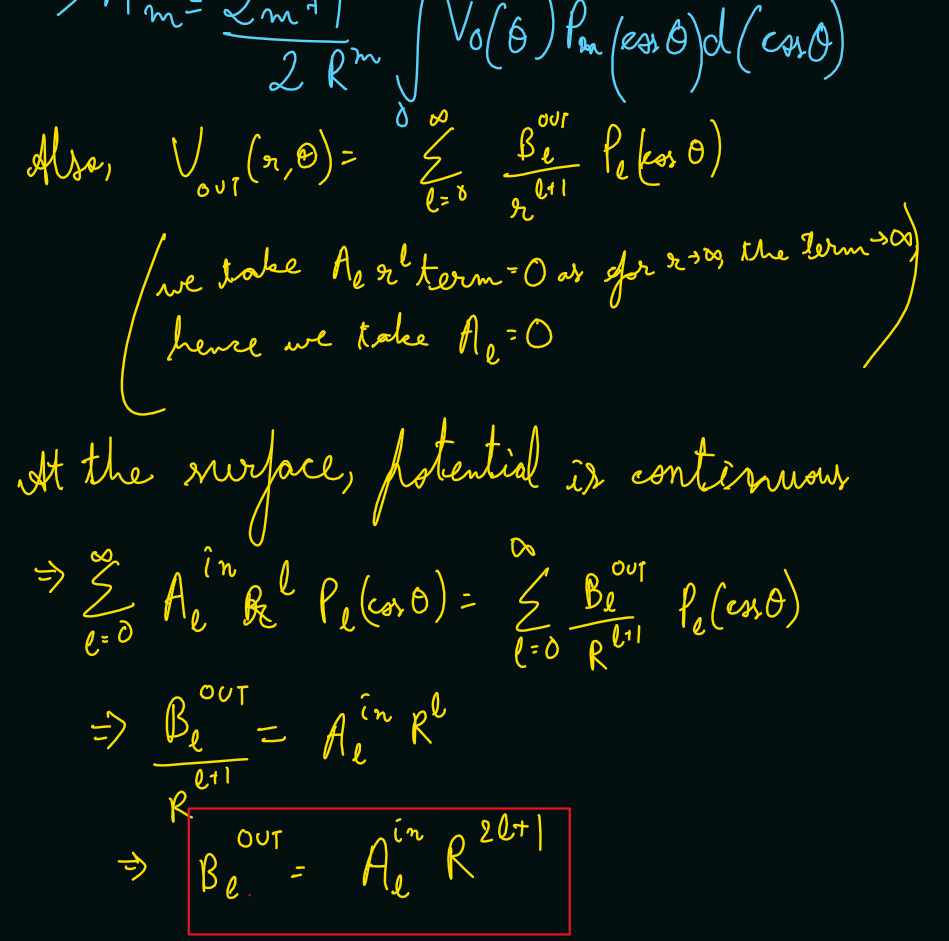 ⇒ A_m = (2m+1)/(2 R^m) ∫_0 V_0(θ) P_m(cos θ) d(cos θ)
Also, V_OUT(r,θ) = Σ_{l=0}^{∞} B_l^OUT / r^{l+1} P_l(cos θ)
(we take A_l r^l term = 0 as for r→∞, the term→∞
hence we take A_l = 0)
At the surface, potential is continuous
⇒ Σ_{l=0}^{∞} A_l^in R^l P_l(cos θ) = Σ_{l=0}^{∞} B_l^OUT / R^{l+1} P_l(cos θ)
⇒ B_l^OUT / R^{l+1} = A_l^in R^l
⇒ B_l^OUT = A_l^in R^{2l+1}